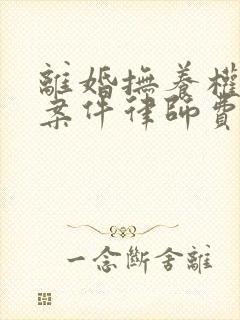 離婚撫養權
案件律師費
一念斷舍離